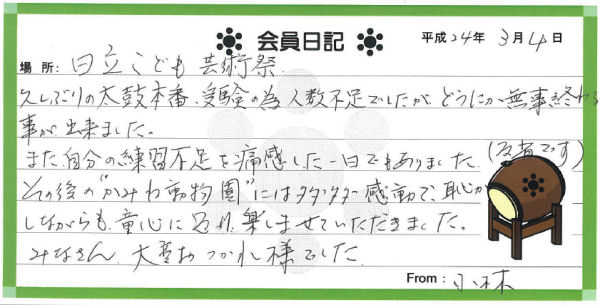 会員日記
平成24年 3月4日
場所: 日立こども芸術祭
久しぶりの太鼓本番、受験の為人数不足でしたが、どうにか無事終わる
事が出来ました。
また自分の練習不足を痛感した一日でもありました。(反省です)
その後の"かみね動物園"にはタダタダ感動で、恥か
しながらも、童心に戻り、楽しませていただきました。
みなさん、大変おつかれ様でした。
From: 小林